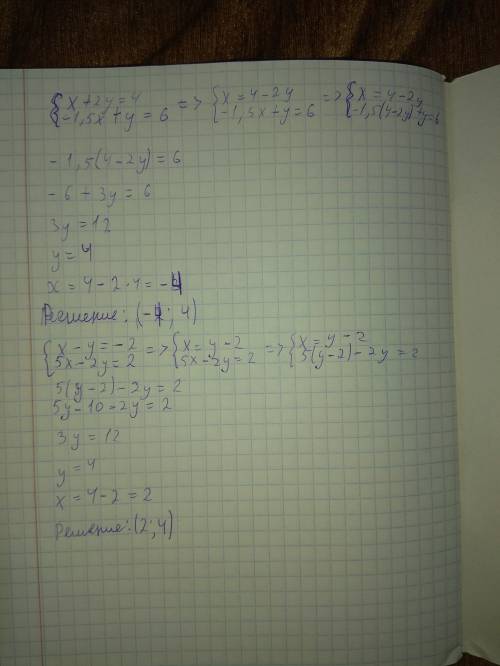 {x + 2y = 4 => {x = 4 - 2y => {x = 4 - 2y
{-1,5x + y = 6 {-1,5x + y = 6 {-1,5(4-2y) + y = 6
-1,5(4-2y) = 6
-6 + 3y = 6
3y = 12
y = 4
x = 4 - 2·4 = -4
Решение: (-4; 4)
{x - y = -2 => {x = y - 2 => {x = y - 2
{5x - 2y = 2 {5x - 2y = 2 {5(y-2) - 2y = 2
5(y-2) - 2y = 2
5y - 10 - 2y = 2
3y = 12
y = 4
x = 4 - 2 = 2
Решение: (2; 4)